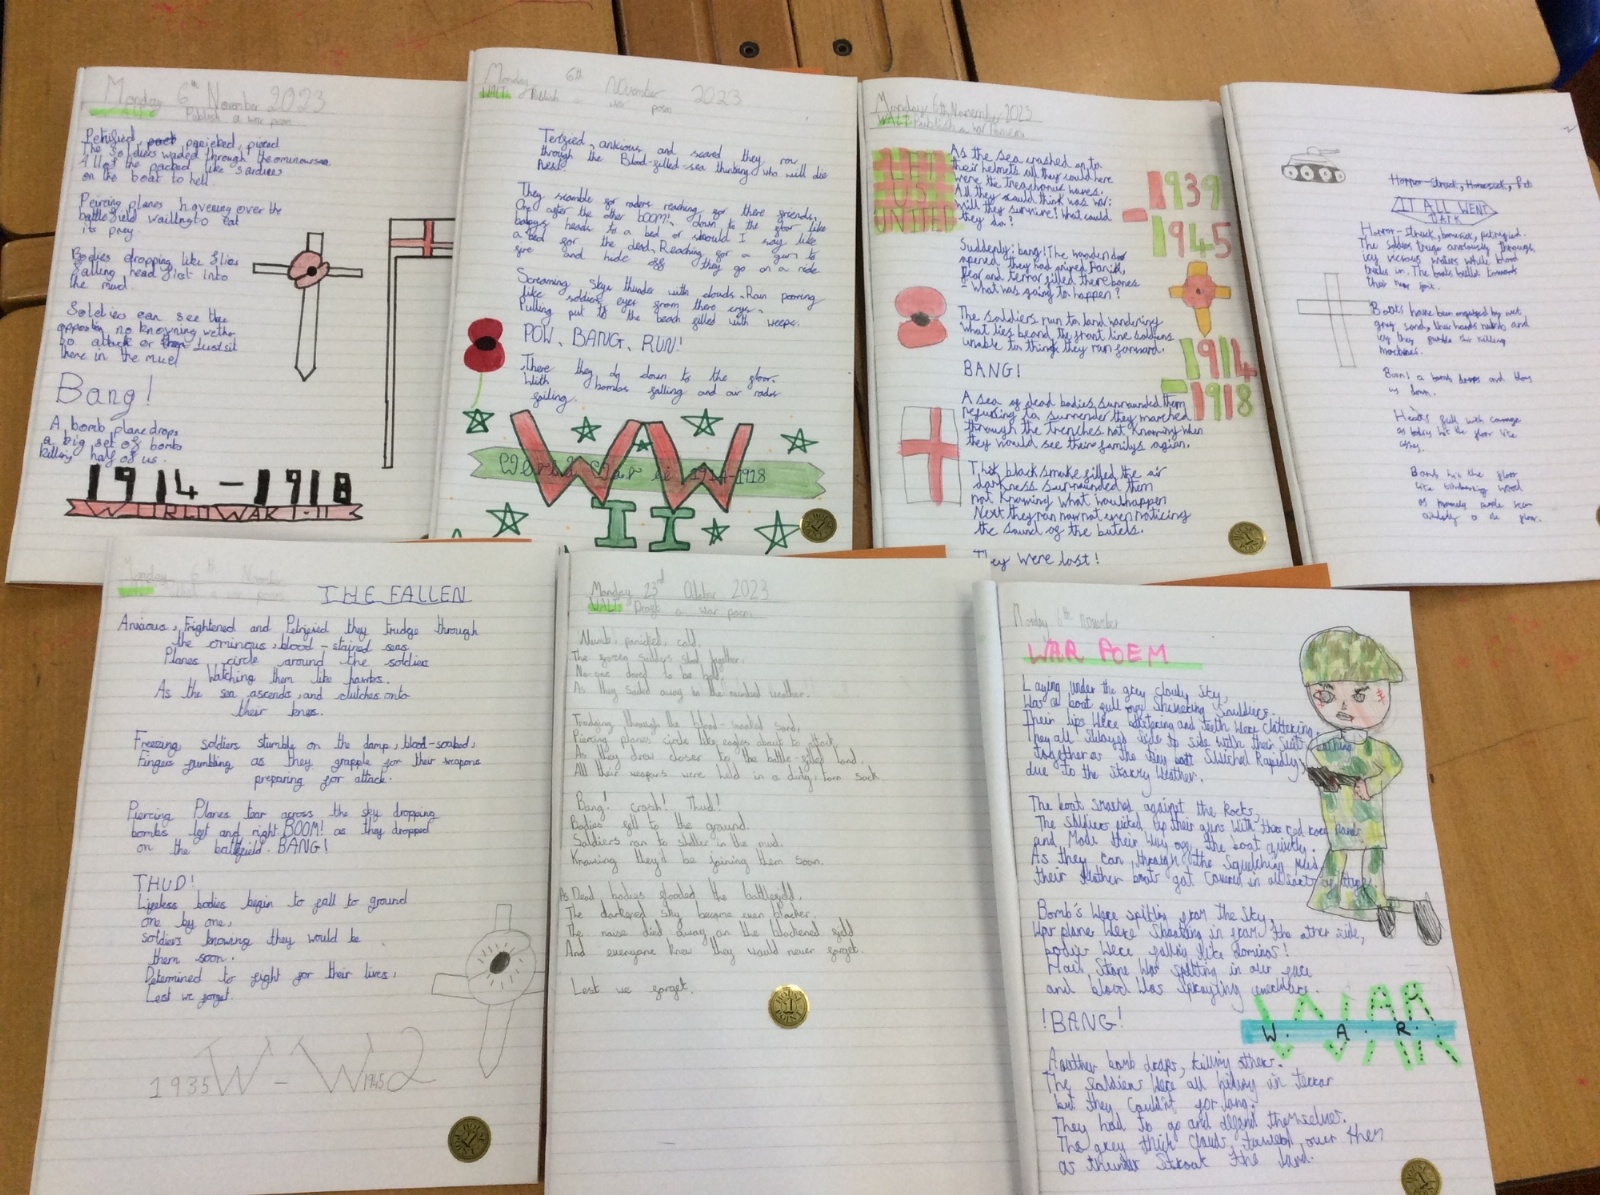 Monday 6th November 2023
WALT: Publish a war poem
Petrified, panicked, pierced
The Soldiers waded through the ominous sea
All of the packed like Sardines
on the boat to hell.
Peircing planes hovering over the
battlefield waiting to eat
its prey.
Bodies dropping like flies
falling head first into
the mud.
Soldiers can see the
no knowing
to attack or Just sit
there in the mud
Bang!
A bomb plane drops
a big set of bombs
killing half of us.
1914 - 1918
WORLD WAR I-II
Monday 6th November 2023
WALT: Publish a war poem
Terrified, anxious and scared they row
through the Blood-filled-sea thinking who will die
next.
They scramble for reaching for there friends,
One after the other BOOM! down to the floor like
babys heads to a bed or should I say like
a bed for the dead. Reaching for a gun to
fire and hide off they go on a ride
Screaming skys thunder with clouds. Rain pooring
like soldiers eyes from there
Pulling put to the beach filled with weeps.
POW, BANG, RUN!
There they do down to the floor.
With bombs falling and air raids
failing.
WW
World War 1914-1918
II
Monday 6th November 2023
WALT: Publish a war
LET
US
UNITE
As the sea crashed on to
their helmets all they could here
were the treacherous waves.
All they could think was war:
Will they survive? What could
they do?
1939
- 1945
Suddenly: bang! The
opened, they had arived. Panick,
fear and terror filled there bones
what was going to happen?
The soldiers run to land wondering
what lies beond the front line soldiers
unable to think they ran forward.
BANG!
1914
- 1918
A sea of dead bodies surrounded them
refusing to surrender they marched
through the trenches not knowing when
they would see their familys again.
Thik black smoke filled the air
darkness surrounded them
not knowing what would happen
Next they ran now not even noticing
the sound of the bulets.
They were lost!
Horror-Struck, Homesick,
IT ALL WENT
DARK
Horror-Struck, homesick, petrified.
The soldiers trudge anxiously through
icy vicious waters while blood
in. The boats towards
their
Boots have been engulfed by wet
grey sand, their hands and
icy they their killing
machines.
Bang! a bomb drops and blows
us down.
Heads full with carnage
as bodys hit the floor like
Bodys hit the floor
like wood
as people
to the floor.
Monday 6th November
WALT: Publish a war poem
THE FALLEN
Anxious, Frightened and Petrified they trudge through
the ominous, blood-stained seas
Planes circle around the soldiers
Watching them like hawks.
As the sea ascends, and clutches onto
their knees.
Freezing soldiers stumble on the damp, blood-soaked,
Fingers fumbling as they grapple for their weapons
preparing for attack.
Piercing Planes tear across the sky dropping
bombs left and right BOOM! as they dropped
on the battlefield. BANG!
THUD!
Lifeless bodies begin to fall to ground
one by one,
soldiers knowing they would be
them soon.
Determined to fight for their lives,
Lest we forget.
1935 WW2 1945
Monday 23rd October 2023
WALT: Draft a war poem
Numb, panicked, cold,
The frozen soldiers sat together,
No-one dared to be bold,
As they sailed away to the weather.
Trudging through the blood-soaked sand,
Piercing planes circle like eagles about to attack,
As they draw closer to the battle-filled land,
All their weapons were held in a dingy, torn sack.
Bang! Crash! Thud!
Bodies fell to the ground.
Soldiers ran to shelter in the mud.
Knowing they'd be joining them soon.
As Dead bodies flooded the battlefield,
The darkened sky became even blacker,
The noise died away on the blackened field
And everyone knew they would never forget.
Lest we forget.
Monday 6th November
WAR POEM
Laying under the grey cloudy sky,
Was a boat full of Shivering Souldiers.
Their lips were and teeth were clattering,
They all Swayed side to side with their Suit
together as the boat Switched Rapidly
due to the Stormy Weather.
The boat smashed against the Rocks,
The Soldiers picked up their guns with their red hands
and Made their way off the boat quickly.
As they ran through the Squelching Mud
their leather boots got covered in all sorts of things
Bomb's were spitting from the Sky,
War planes were Shooting in from the other side,
bodies were falling like dominos!
Hail Stone was spitting in our face
and blood was Spraying
WAR
W. A. R.
!BANG!
Another bomb drops, killing others.
The Soldiers were all hiding in terror
but they Couldn't for long.
They had to go and defend themselves.
The grey thick Clouds tumbled over them
as thunder the land.